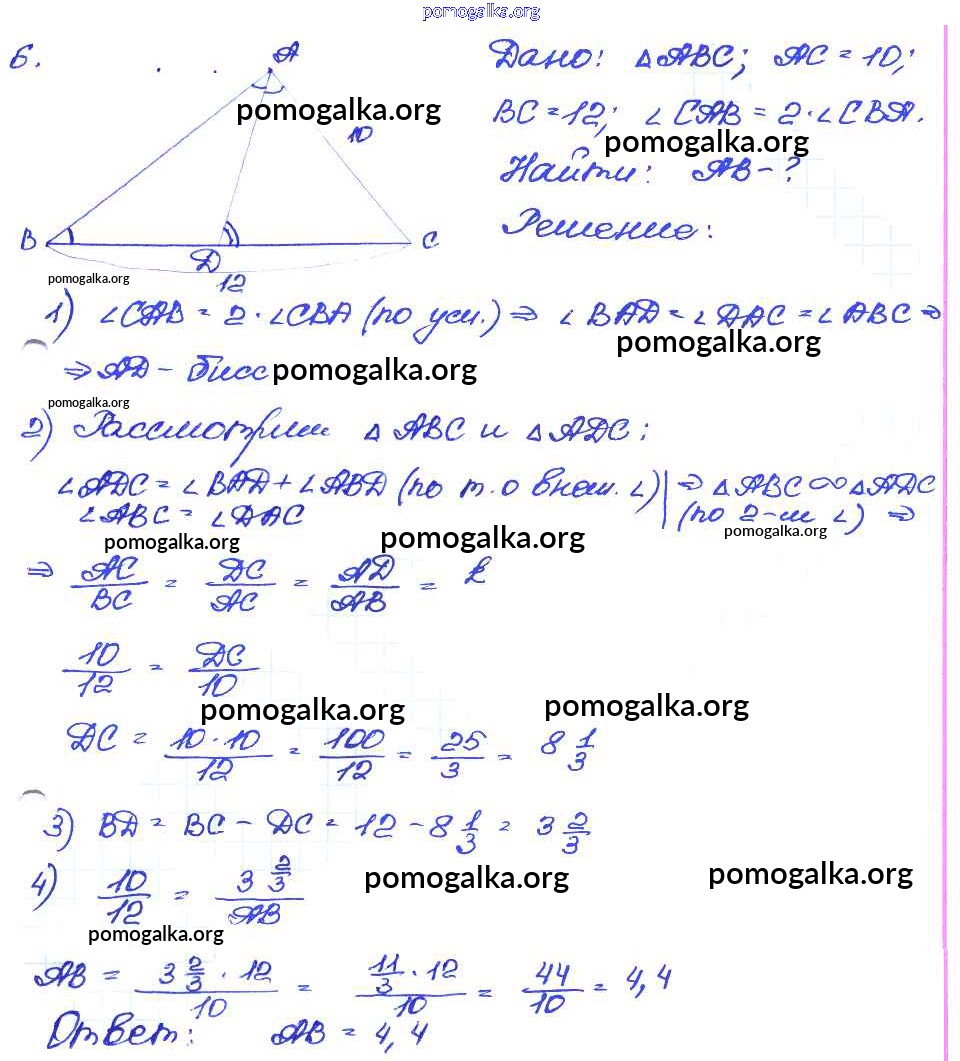 pomogalka.org
6.
A
10
B
D
C
12
Дано: △ABC; AC = 10;
BC = 12; ∠CAB = 2·∠CBA.
Найти: AB - ?
Решение:
pomogalka.org
pomogalka.org
pomogalka.org
1) ∠CAB = 2·∠CBA (по усл.) ⇒ ∠BAD = ∠DAC = ∠ABC ⇒
pomogalka.org
⇒ AD - бисс
pomogalka.org
pomogalka.org
2) Рассмотрим △ABC и △ADC:
∠ADC = ∠BAD + ∠ABD (по т. о внеш. ∠) | ⇒ △ABC ∾ △ADC
∠ABC = ∠DAC | (по 2-м ∠) ⇒
pomogalka.org
pomogalka.org
pomogalka.org
⇒ AC/BC = DC/AC = AD/AB = k
10/12 = DC/10
pomogalka.org
pomogalka.org
DC = 10·10/12 = 100/12 = 25/3 = 8 1/3
3) BD = BC - DC = 12 - 8 1/3 = 3 2/3
4) 10/12 = 3 2/3 / AB
pomogalka.org
pomogalka.org
pomogalka.org
AB = 3 2/3 · 12 / 10 = 11/3 · 12 / 10 = 44/10 = 4,4
Ответ: AB = 4,4